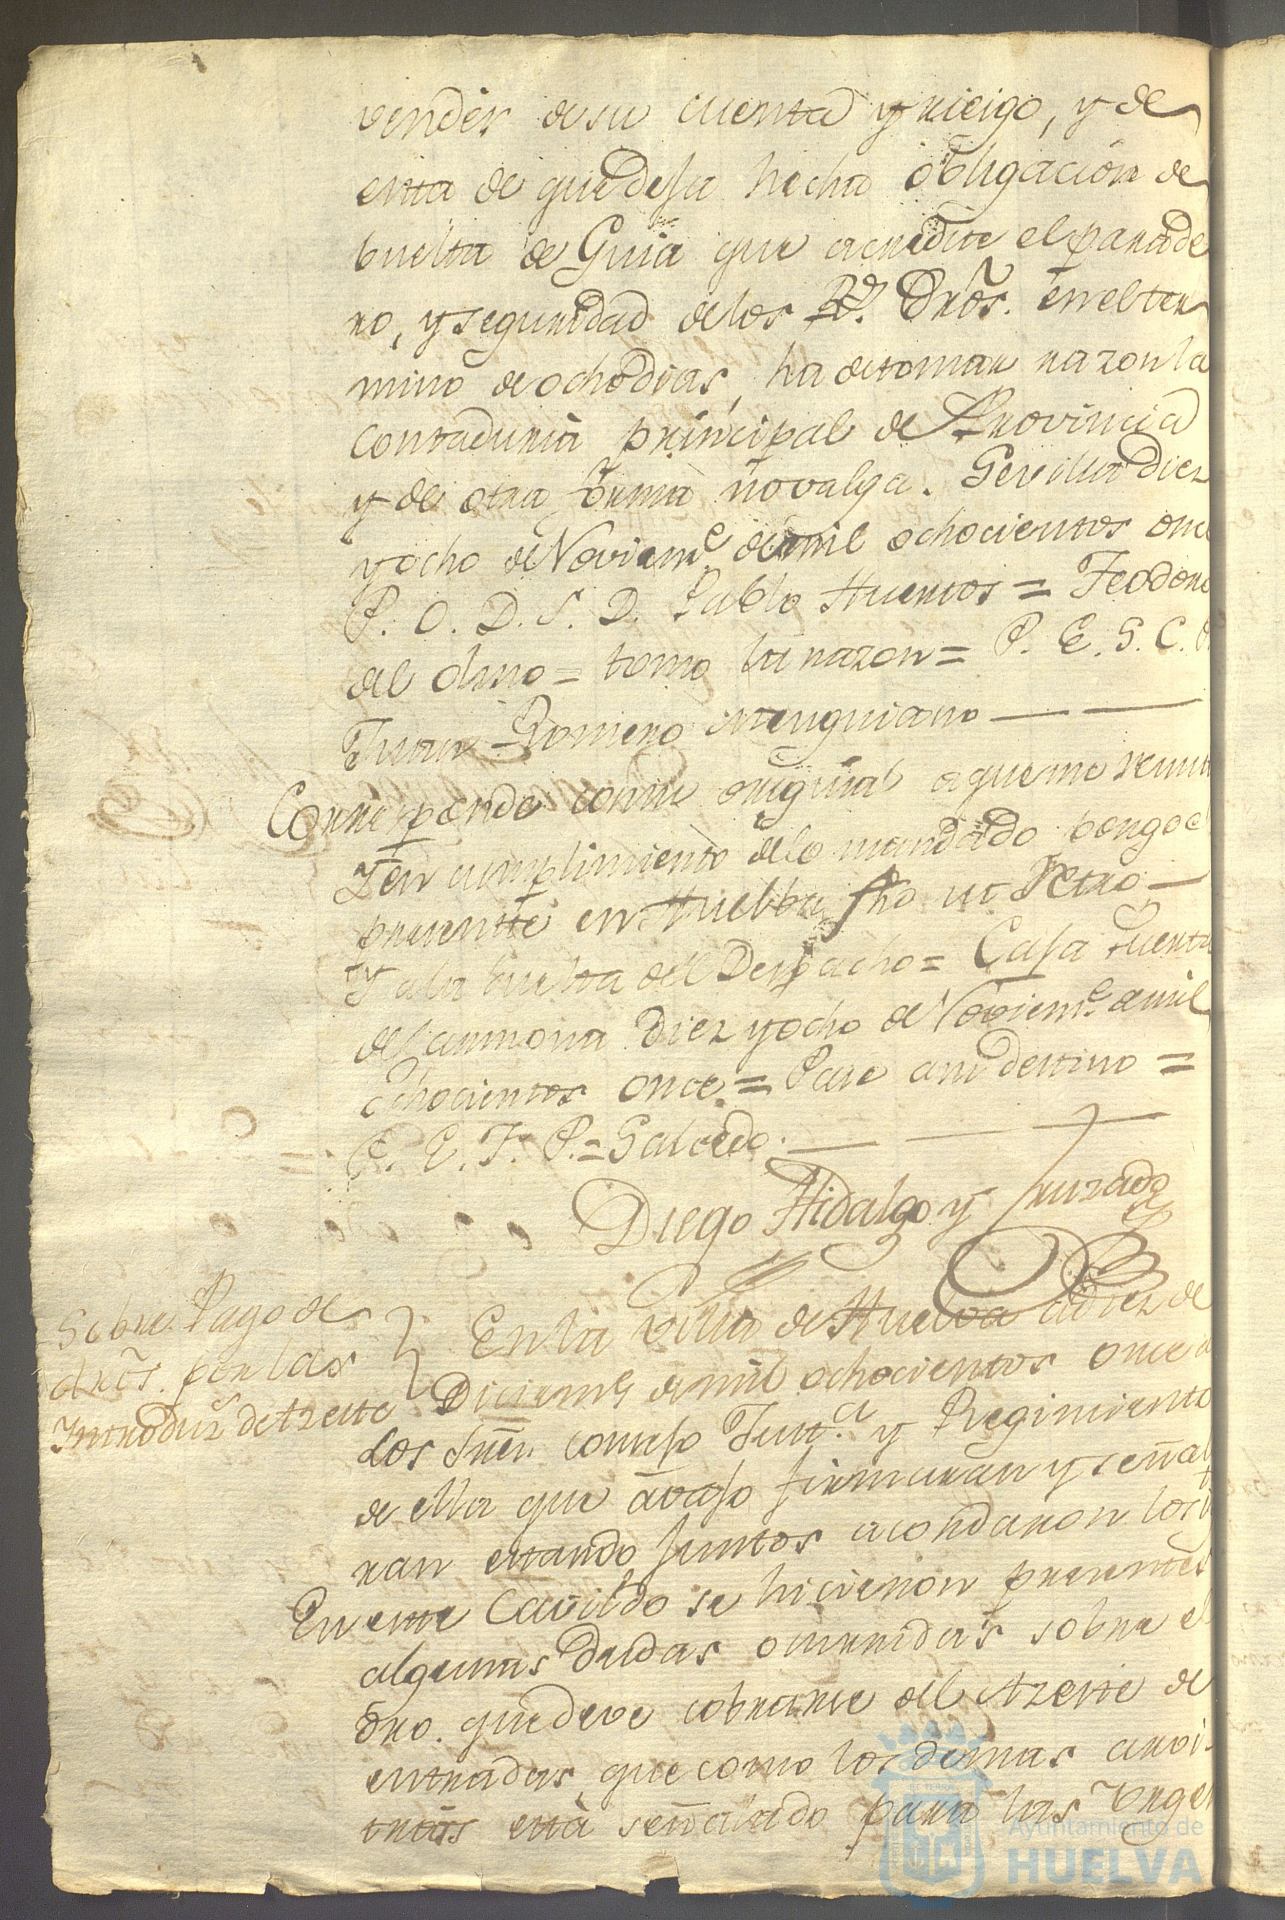 vender de su cuenta y riesgo, y de
esta de que deja hecha obligación de
buelta de Guia que acredite el parade
ro, y seguridad de los Rs. Dros. en el ter
mino de ocho dias, ha de tomar razon la
Contaduria principal de Provincia
y de otra forma no valga. Sevilla diez
y ocho de Noviemᵉ de mil ochocientos once
P. O. D. S. D. Pablo Huertos = Teodoro
del Olmo = tomo la razon = P. E. S. C. P.
Juan Romero Menguiano
Corresponde con su original a que me remito
Y en cumplimiento de lo mandado pongo el
presente en Huelba fho ut Retro
Y a la buelta del Despacho = Casa Puerta
de Carmona Diez y ocho de Noviemᵉ de mil
ochocientos once = Pase a su destino =
P. E. F. P. = Salcedo.
Diego Hidalgo y Jurado
Sobre Pago de
dros. por las
Introduz. de Azeite
En la Villa de Huelva a diez de
Diciemᵉ de mil ochocientos once a
Los Sres. Consejo Just.ᵃ y Regimiento
de ella que avajo firmaran y señal
ran estando juntos acordaron los
En este Cavildo se hicieron presentes
algunas dudas ocurridas sobre el
dro. que deve cobrarse del Azeite de
entradas que como los demas arvi-
trios está señalado para las Urge
Ayuntamiento de
HUELVA